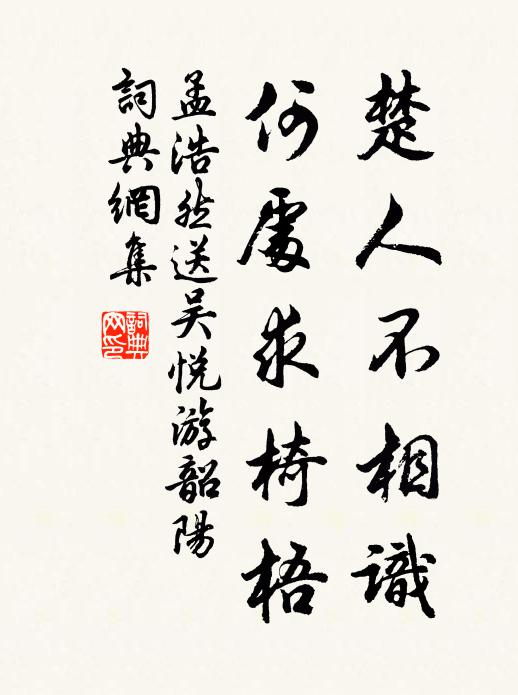 楚人不相識
何處求椅梧
孟浩然送吴悦游韶陽
詞典網集
詞典网印